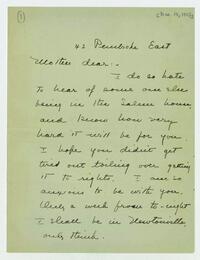 (1)
42 Pembroke East
Mother dear:-
I do so hate
to hear of some one else
being in the Salem house,
and know how very
hard it will be for you.
I hope you didn't get
tired out toiling over getting
it to rights. I am so
anxious to be with you.
Only a week from to-night
I shall be in Newtonville,
only think.